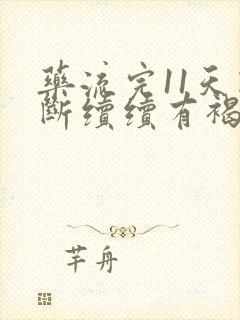 藥流完11天
斷續續有褐
芊舟